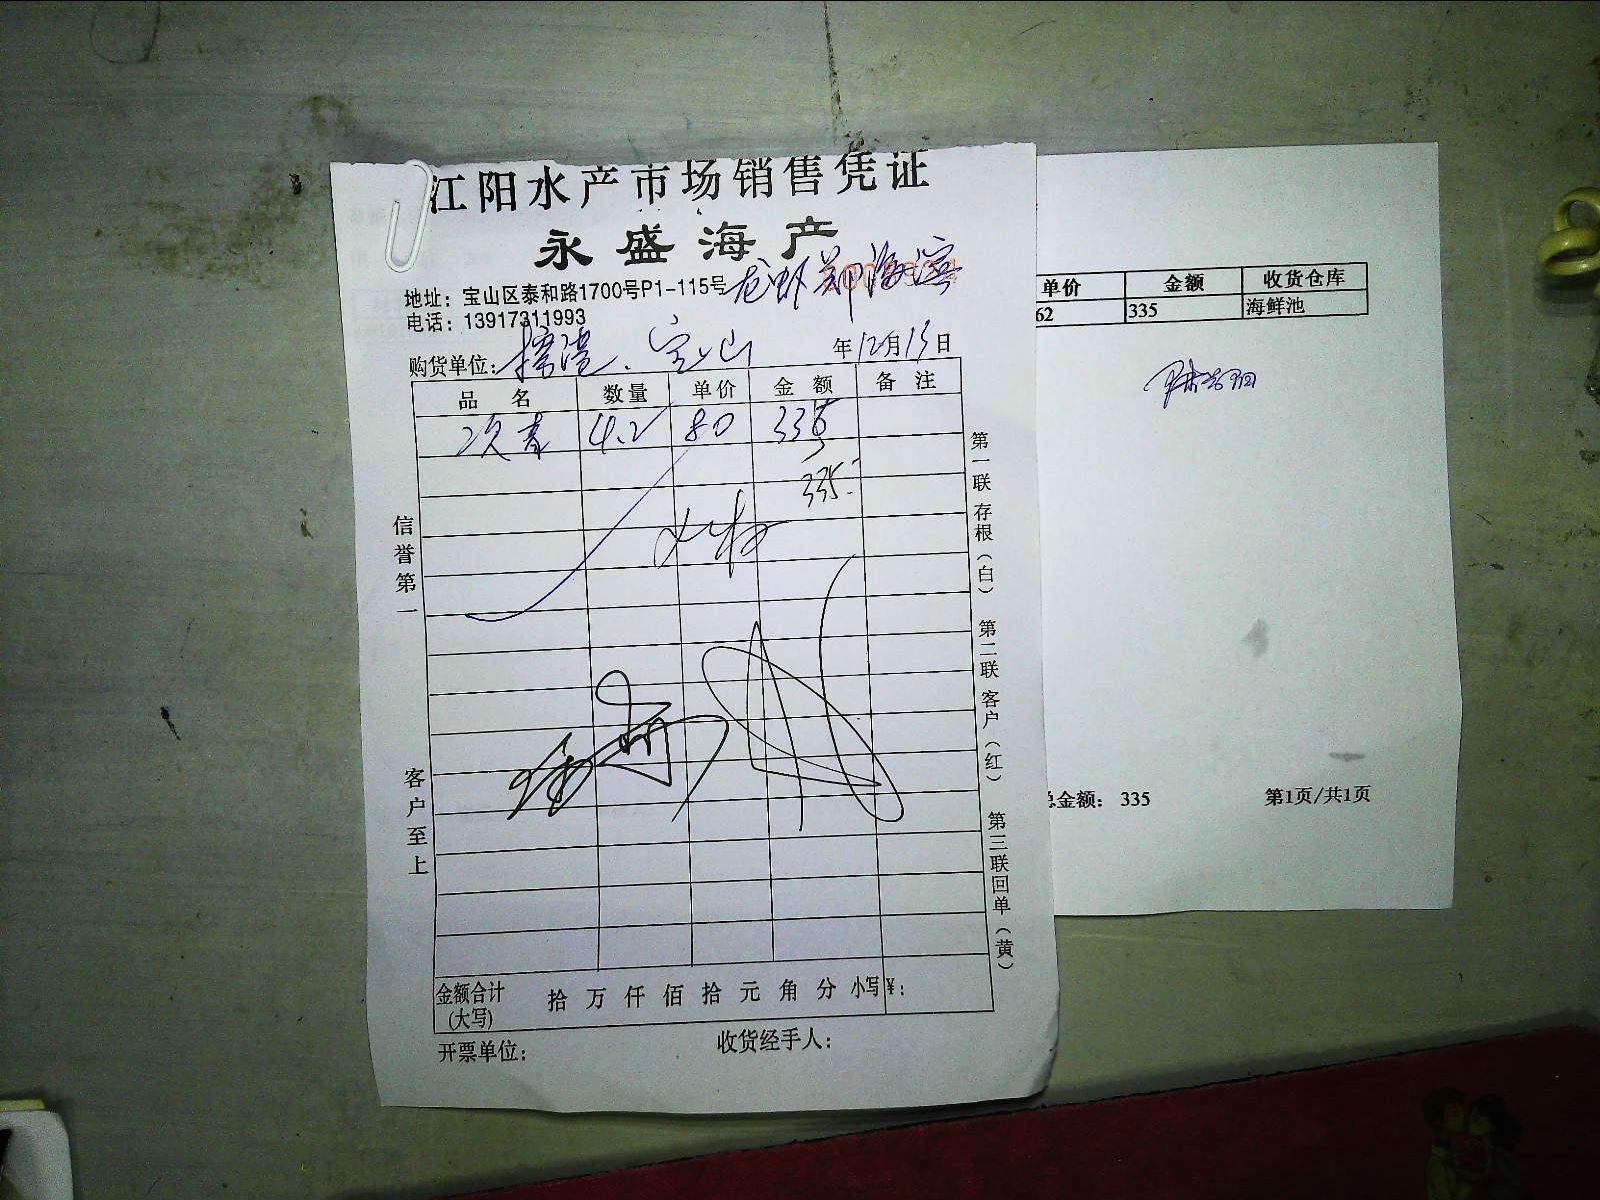 江阳水产市场销售凭证
永盛海产
地址：宝山区泰和路1700号P1-115号
电话：13917311993
龙虾郑海滨
购货单位：宝山 年12月13日
品名 数量 单价 金额 备注
4.2 80 335
335.-
信誉第一
客户至上
第一联存根（白）
第二联客户（红）
第三联回单（黄）
金额合计(大写) 拾 万 仟 佰 拾 元 角 分 小写¥：
开票单位： 收货经手人：
单价 金额 收货仓库
62 335 海鲜池
总金额： 335 第1页/共1页